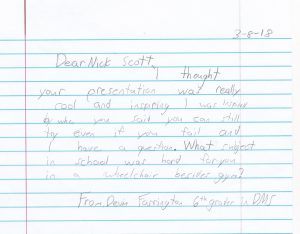 3-8-18
Dear Nick Scott,
I thought
your presentation was really
cool and inspiring I was
when you said you can still
try even if you fail and
I have a question. What subject
in school was hard for you
in a wheelchair besides gym?
From Devin Farrington 6th grader in DMS